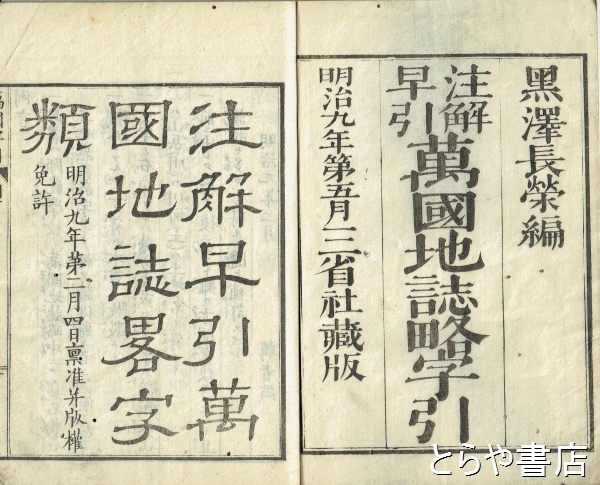 黑澤長榮編
注解
早引
萬國地誌略字引
明治九年第五月三省社藏版
注解早引萬
國地誌畧字
類
明治九年第二月四日稟准并版權
免許
とらや書店